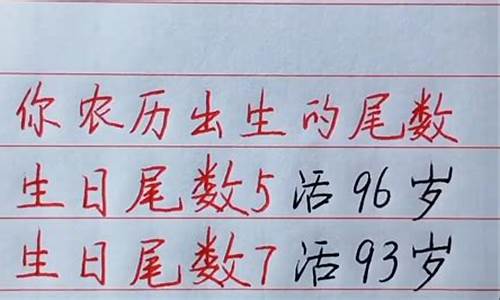 你农历出生的尾数
生日尾数5 活96岁
生日尾数7 活93岁